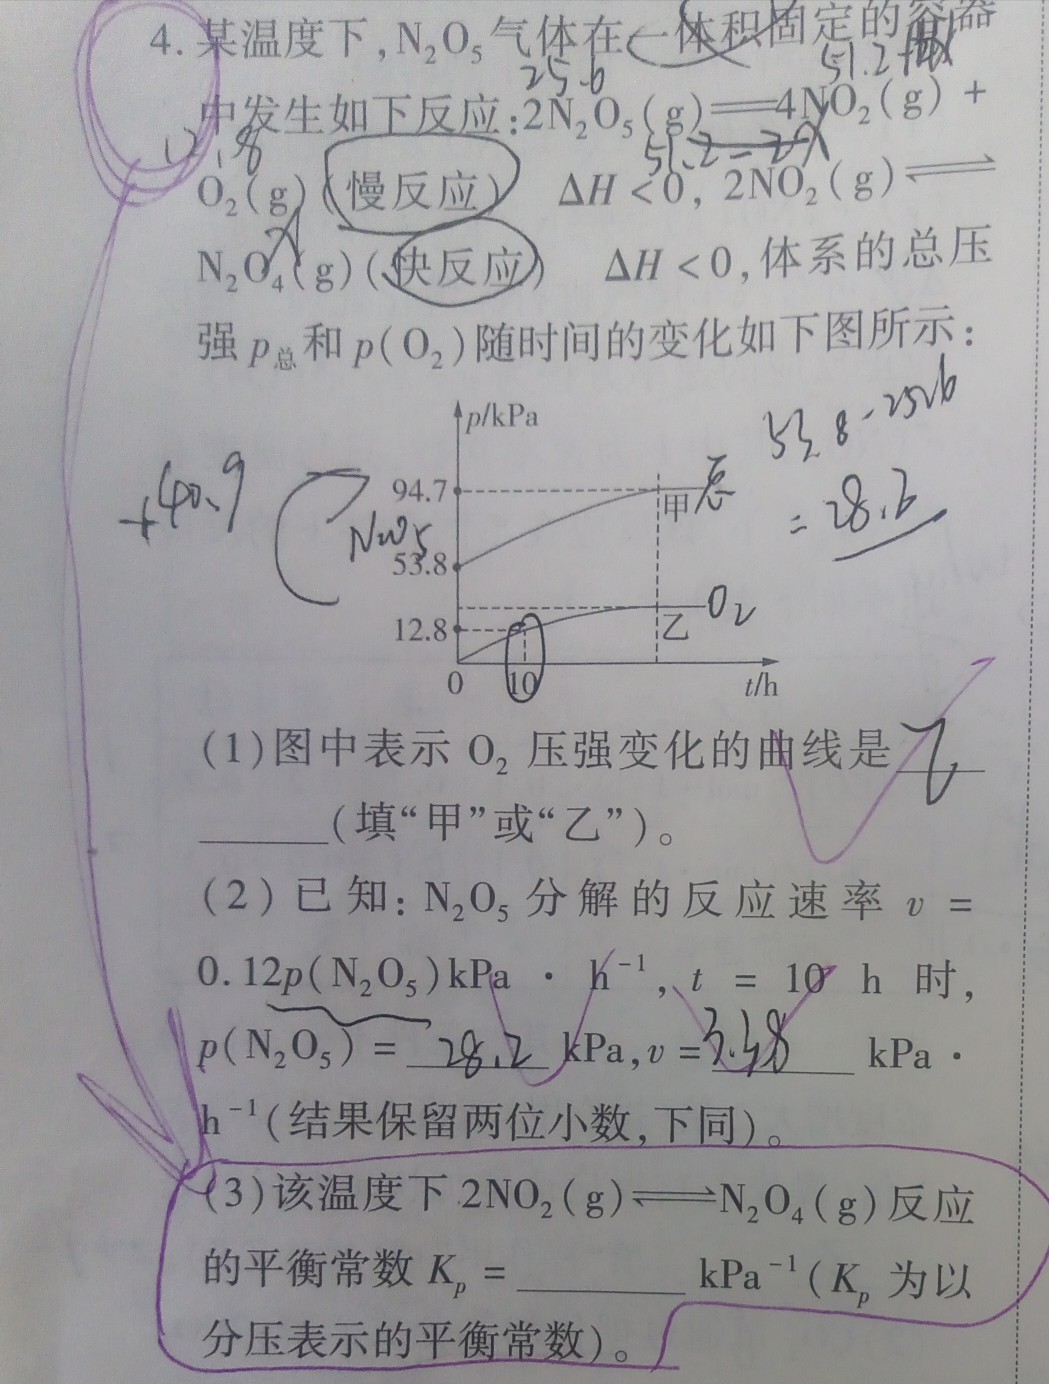 4. 某温度下,N₂O₅气体在一体积固定的容器
25.6 51.2
中发生如下反应:2N₂O₅(g)══4NO₂(g) +
12.8 51.2-2x
O₂(g)(慢反应) ΔH<0, 2NO₂(g)⇌
x
N₂O₄(g)(快反应) ΔH<0,体系的总压
强p总和p(O₂)随时间的变化如下图所示:
p/kPa
53.8-25.6
=28.2
+40.9
94.7
甲
总
N₂O₅
53.8
O₂
12.8
乙
0 10 t/h
(1)图中表示O₂压强变化的曲线是乙
______(填“甲”或“乙”)。
(2)已知:N₂O₅分解的反应速率v=
0.12p(N₂O₅)kPa·h⁻¹,t=10 h时,
p(N₂O₅)=28.2 kPa,v=3.38 kPa·
h⁻¹(结果保留两位小数,下同)。
(3)该温度下2NO₂(g)⇌N₂O₄(g)反应
的平衡常数Kₚ=________kPa⁻¹(Kₚ为以
分压表示的平衡常数)。